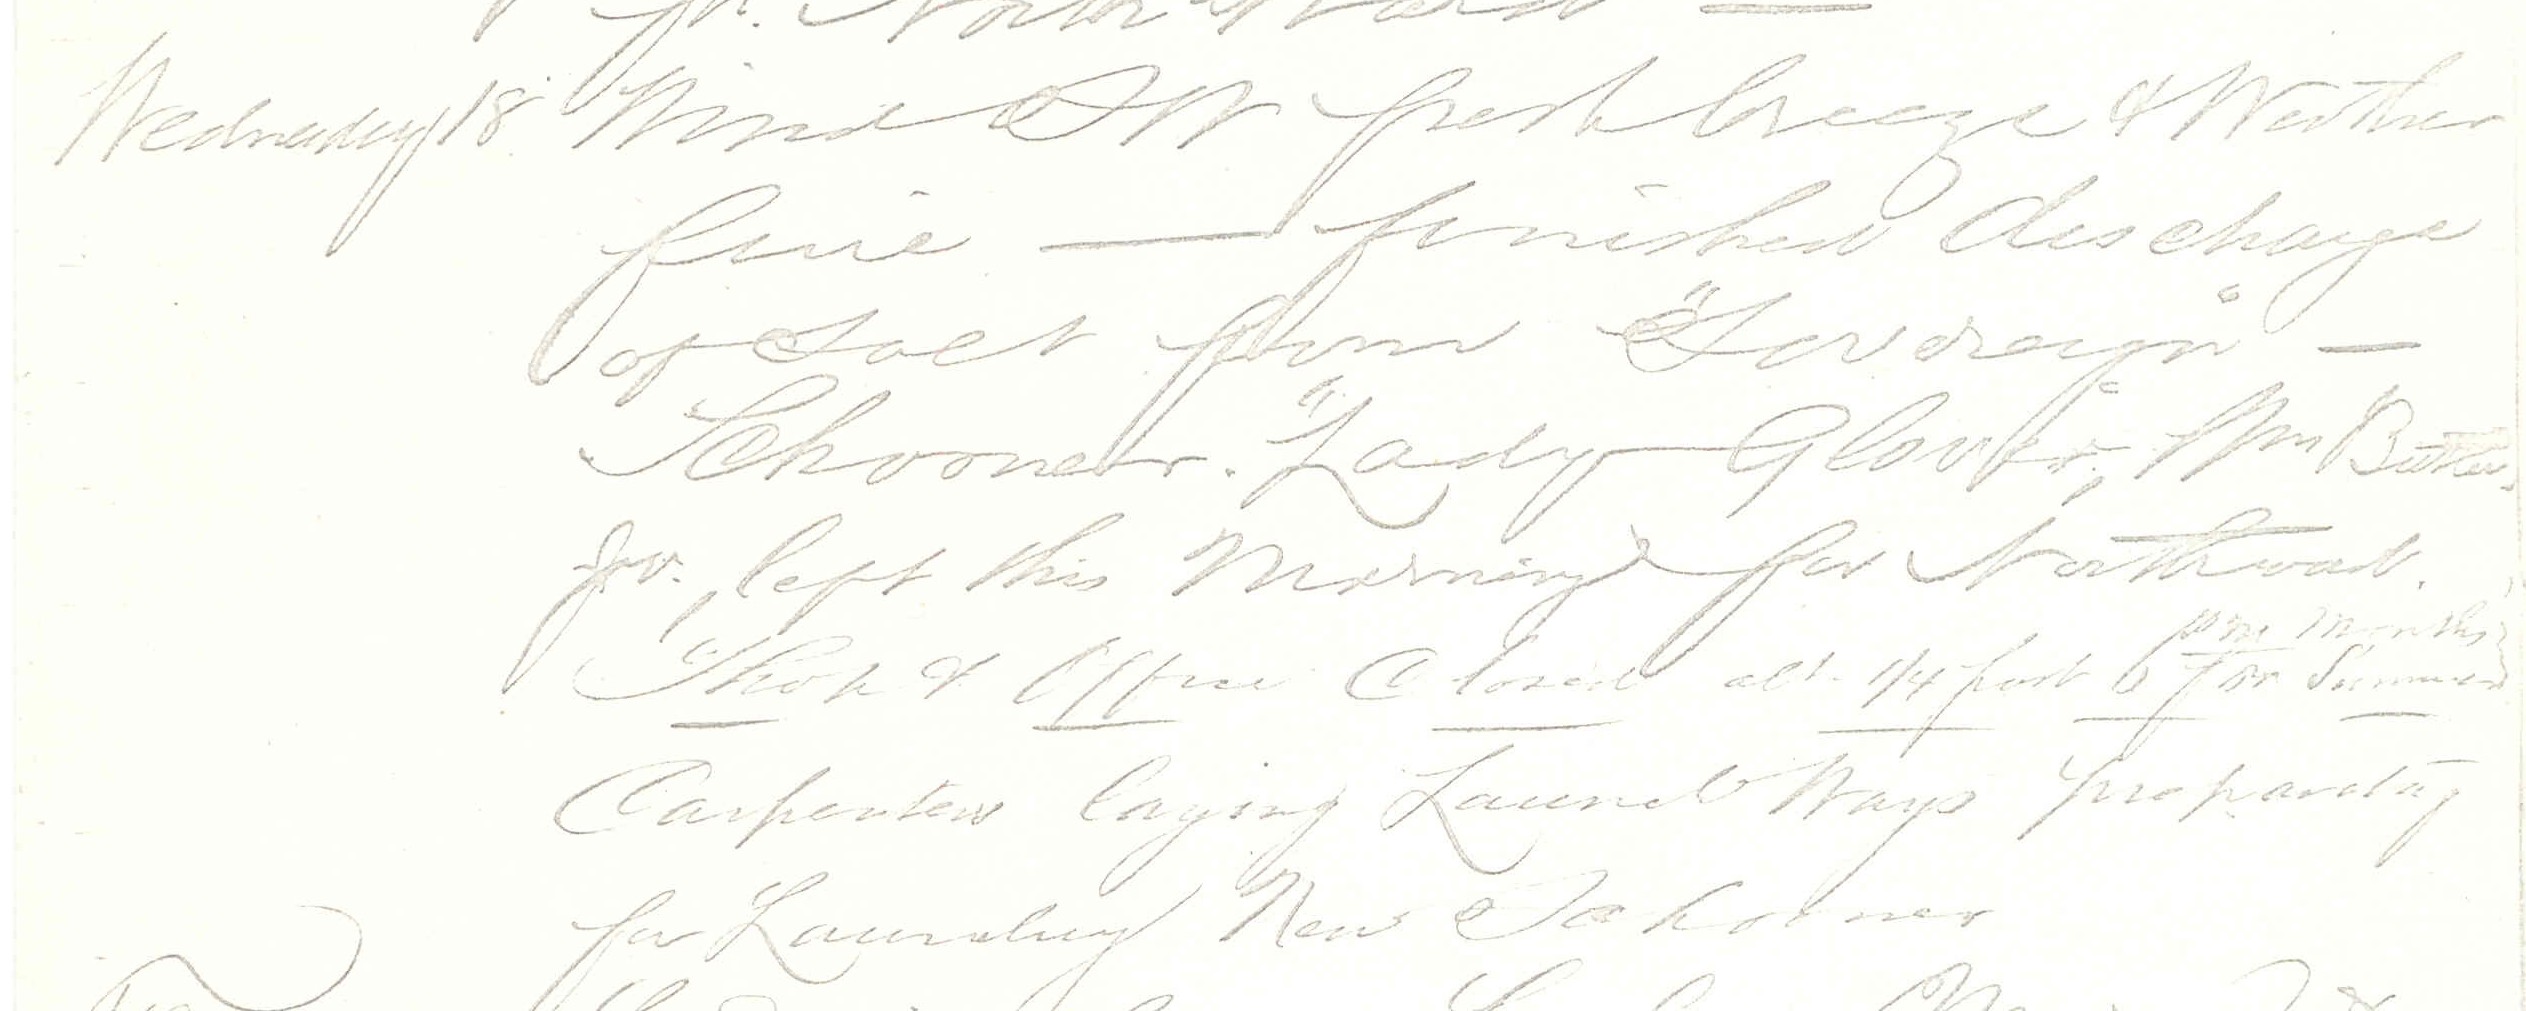 fr. Northward —
Wednesday 18 Wind SW fresh breeze & Weather
fine — finished discharge
of Salt from "Sovereign" —
Schooner. "Lady Glover", Wm Butler
Jr., left this Morning for Northward.
Shop & Office Closed at 1/4 past 6 for Summer Months
Carpenters laying Launch Ways preparing
for Launching New Schooner